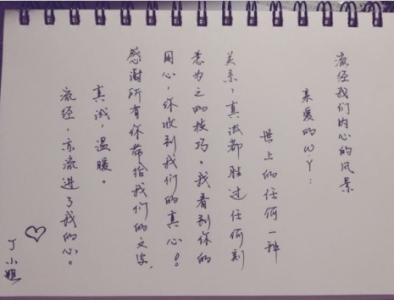 流经我们内心的风景
亲爱的WY：
世上的任何一种
关系，真诚都胜过任何刻
意为之的技巧。我看到你的
用心，你收到我们的真心！
感谢所有你带给我们的文字，
真诚，温暖。
流经，亦流进了我的心。
丁小姐